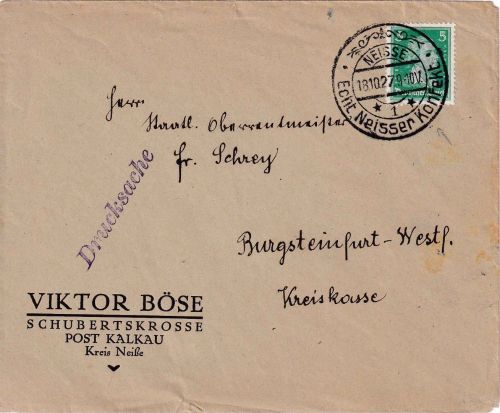 5
NEISSE
18.10.27.9-10V.
* 1 *
Echt Neisser Konfekt
Herrn
Staatl. Oberrentmeister
Fr. Schrey
Drucksache
Burgsteinfurt-Westf.
Kreiskasse
VIKTOR BÖSE
SCHUBERTSKROSSE
POST KALKAU
Kreis Neiße